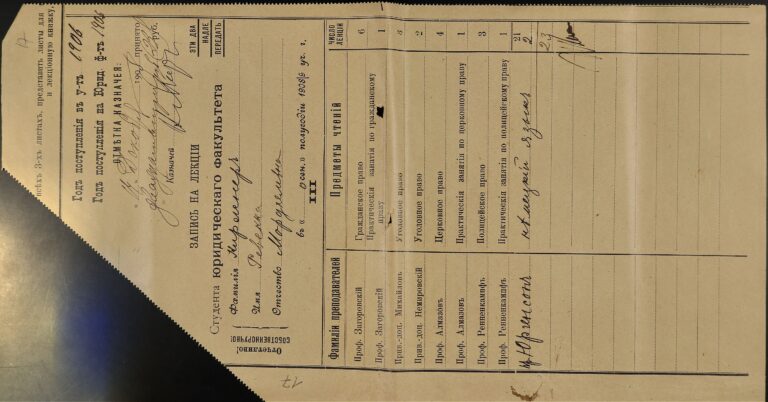 всѣхъ 3-хъ листахъ, представить листы для
и лекціонную книжку.
Годъ поступленія въ у-тъ 1906
Годъ поступленія на Юрид. Ф-тъ 1906
ОТМѢТКА КАЗНАЧЕЯ:
год
принято
руб.
Казначей
ЭТИ ДВА
НАДЛЕ
ПЕРЕДАТЬ
ЗАПИСЬ НА ЛЕКЦІИ
Студента юридическаго факультета
Отчетливо!
СОБСТВЕННОРУЧНО!
Фамилія
Имя Ревекка
Отчество
въ « осен. » полугодіи 1908/9 уч. г.
III
Фамиліи преподавателей Предметы чтеній ЧИСЛО ЛЕКЦІИ
Проф. Загоровскій Гражданское право 6
Проф. Загоровскій Практическія занятія по гражданскому праву 1
Прив.-доц. Михайловъ Уголовное право 3
Прив.-доц. Немировскій Уголовное право 2
Проф. Алмазовъ Церковное право 4
Проф. Алмазовъ Практическія занятія по церковному праву 1
Проф. Ренненкампфъ Полицейское право 3
Проф. Ренненкампфъ Практическія занятія по полицейскому праву 1
Юргенсонъ нѣмецкій языкъ 2
23
17